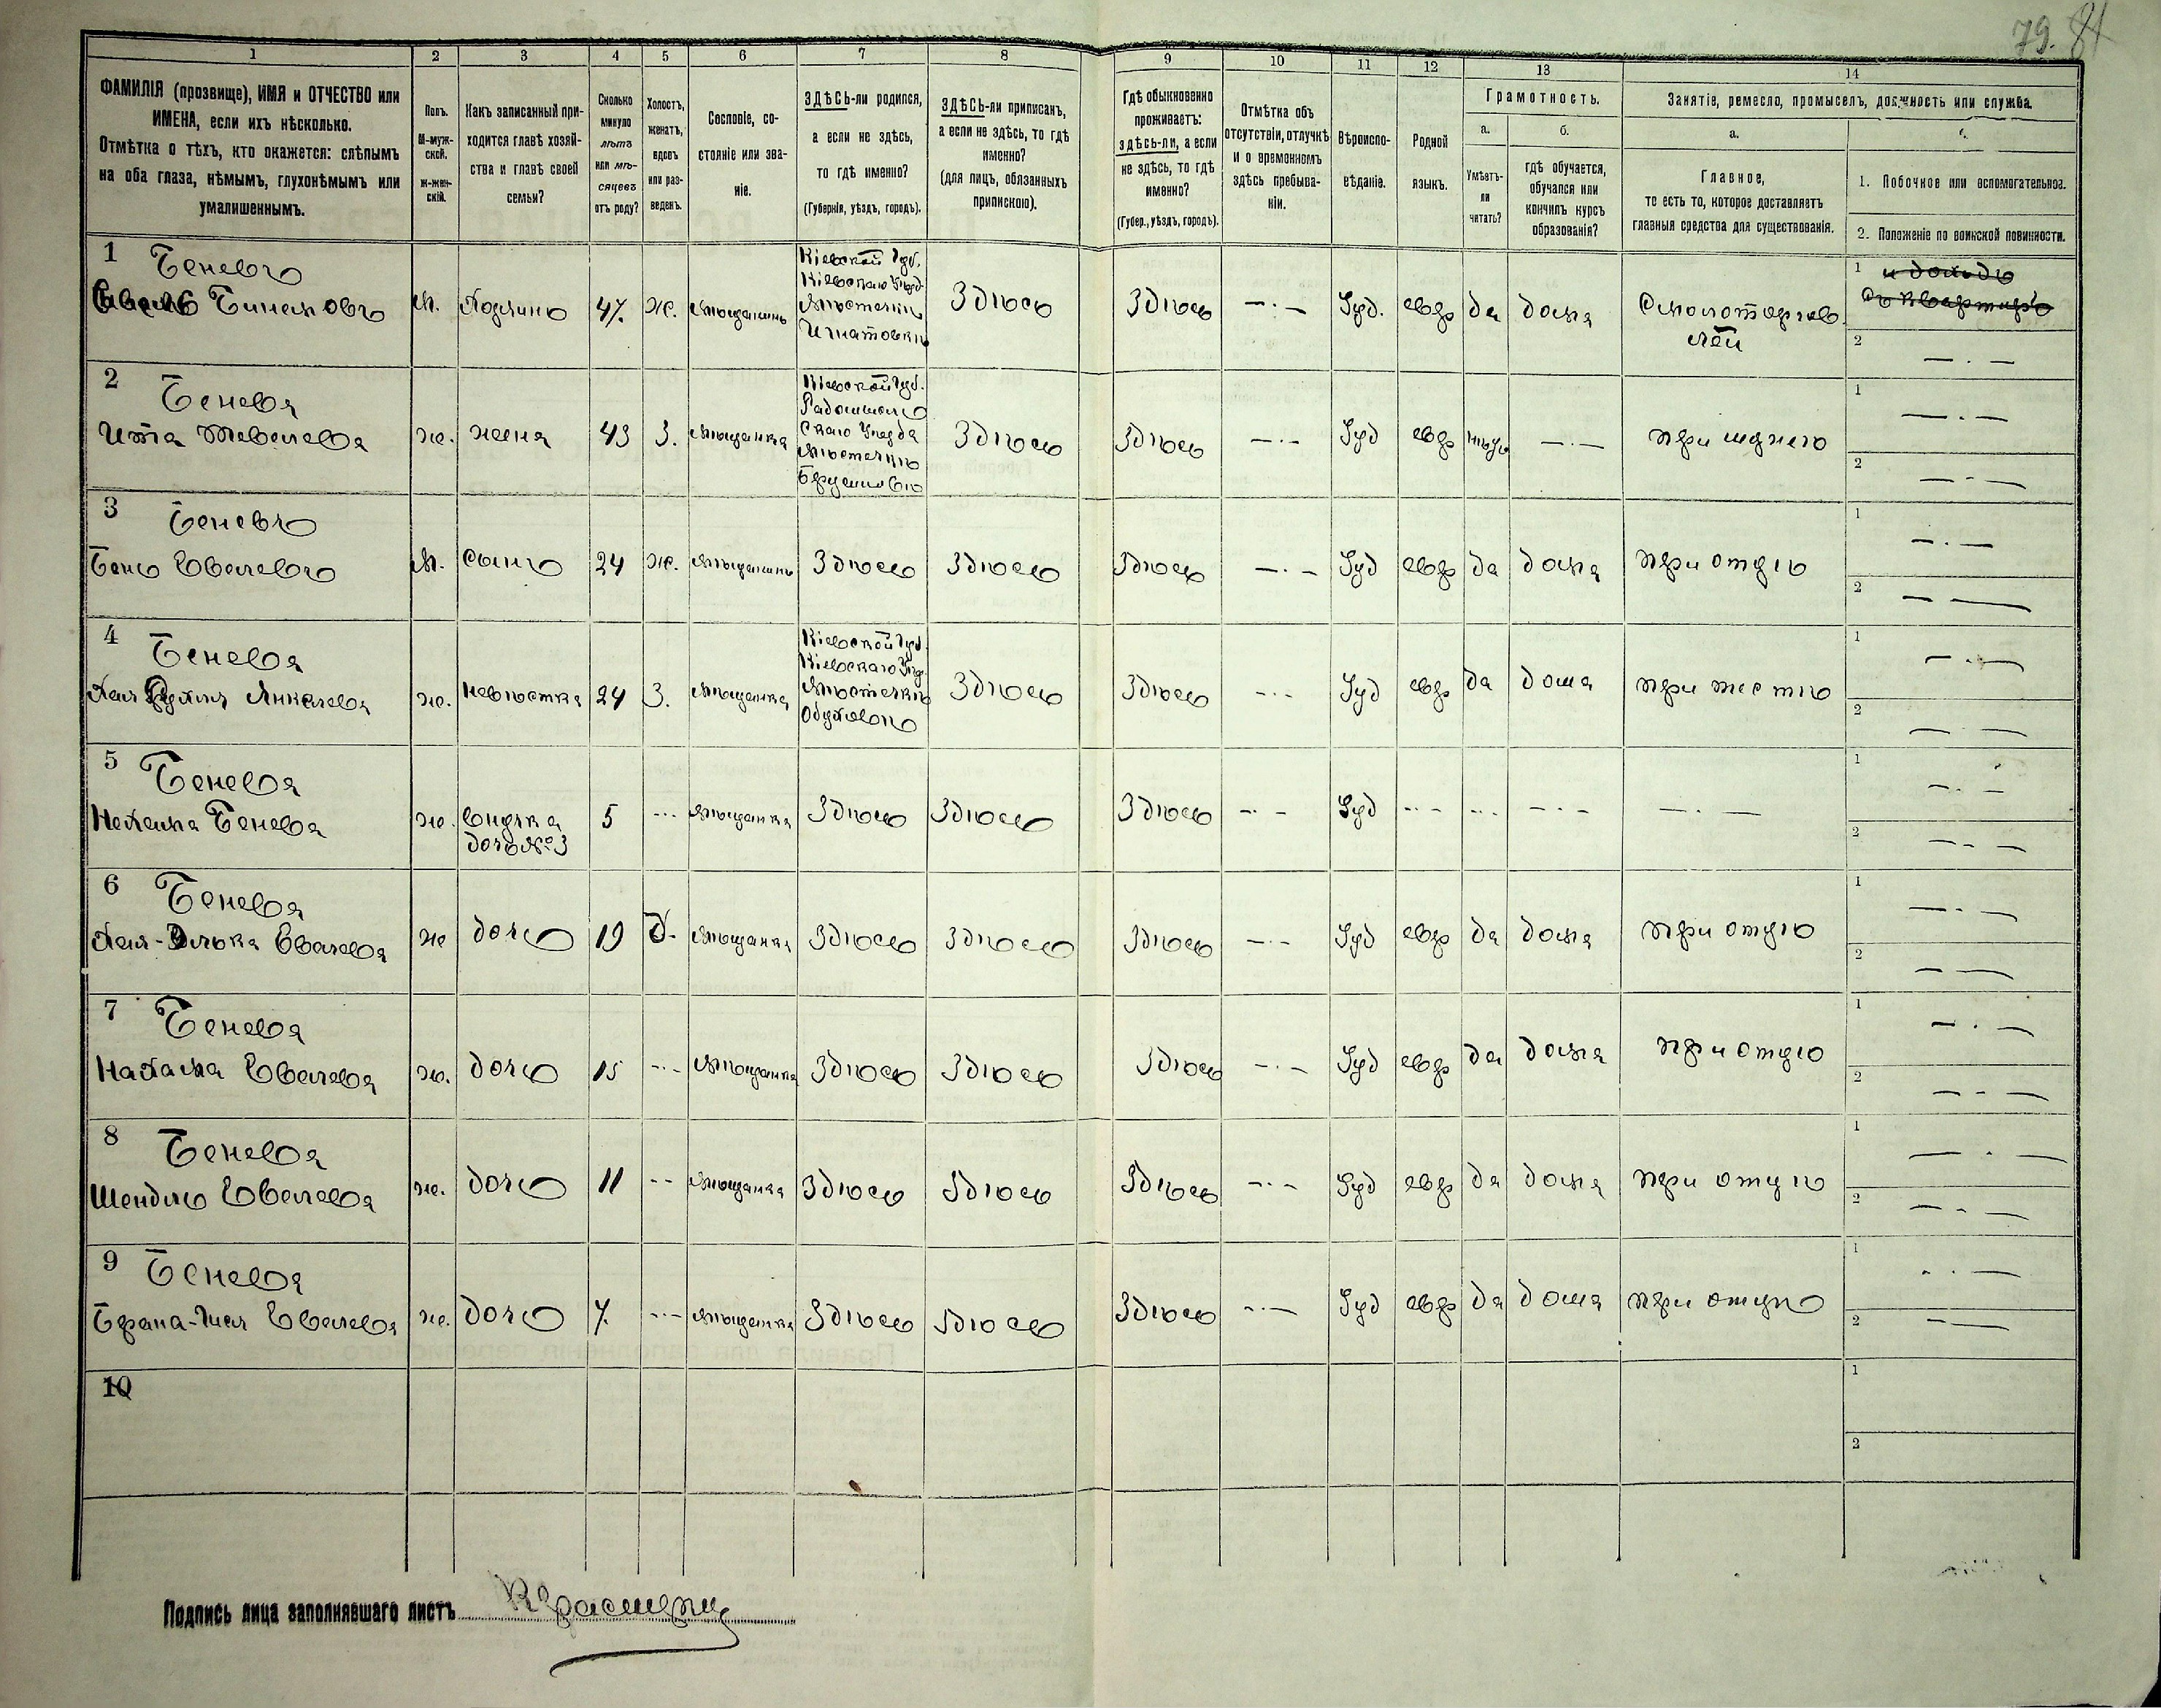 79. 81
1 2 3 4 5 6 7 8 9 10 11 12 13 14
ФАМИЛІЯ (прозвище), ИМЯ и ОТЧЕСТВО или
ИМЕНА, если ихъ нѣсколько.
Отмѣтка о тѣхъ, кто окажется: слѣпымъ
на оба глаза, нѣмымъ, глухонѣмымъ или
умалишеннымъ.
Полъ.
М-муж-
ской.
ж-жен-
скій.
Какъ записанный при-
ходится главѣ хозяй-
ства и главѣ своей
семьи?
Сколько
минуло
лѣтъ
или мѣ-
сяцевъ
отъ роду?
Холостъ,
женатъ,
вдовъ
или раз-
веденъ.
Сословіе, со-
стояніе или зва-
ніе.
ЗДѢСЬ-ли родился,
а если не здѣсь,
то гдѣ именно?
(Губернія, уѣздъ, городъ).
ЗДѢСЬ-ли приписанъ,
а если не здѣсь, то гдѣ
именно?
(для лицъ, обязанныхъ
припискою).
Гдѣ обыкновенно
проживаетъ:
здѣсь-ли, а если
не здѣсь, то гдѣ
именно?
(Губер., уѣздъ, городъ).
Отмѣтка объ
отсутствіи, отлучкѣ
и о временномъ
здѣсь пребыва-
ніи.
Вѣроиспо-
вѣданіе.
Родной
языкъ.
Грамотность.
а.
Умѣетъ-
ли
читать?
б.
гдѣ обучается,
обучался или
кончилъ курсъ
образованія?
Занятіе, ремесло, промыселъ, должность или служба.
а.
Главное,
то есть то, которое доставляетъ
главныя средства для существованія.
1. Побочное или вспомогательное.
2. Положеніе по воинской повинности.
1 Беневъ
Биньяновъ
м. 47. ж. мѣщанинъ
Кіевской Губ.
Кіевскаго Уѣзд.
Мѣстечкѣ
Игнатовкѣ
Здѣсь Здѣсь — · — Іуд. евр да дома
1 и доходъ
съ квартиръ
2 — · —
2 Бенева
Ита Шевелева
ж. жена 43 З. мѣщанка
Кіевской Губ.
Радомысль
скаго Уѣзда
Мѣстечкѣ
Брусиловѣ
Здѣсь Здѣсь — · — Іуд евр — · — при мужѣ
1 — · —
2 — · —
3 Беневъ
Бень Евелевъ
м. сынъ 24 ж. мѣщанинъ Здѣсь Здѣсь Здѣсь — · — Іуд евр да дома при отцѣ
1 — · —
2 — —
4 Бенева
Янкелева
ж. невѣстка 24 З. мѣщанка
Кіевской Губ.
Кіевскаго Уѣзд.
Мѣстечкѣ
Обуховкѣ
Здѣсь Здѣсь — · — Іуд евр да дома при тестѣ
1 — · —
2 — · —
5 Бенева
Нехама Бенева
ж. внучка
дочь № 3
5 — мѣщанка Здѣсь Здѣсь Здѣсь — · — Іуд — · — — · — — · — — · —
1 — · —
2 — · —
6 Бенева
Хая-Элька Евелева
ж дочь 19 д. мѣщанка Здѣсь Здѣсь Здѣсь — · — Іуд евр да дома при отцѣ
1 — · —
2 — —
7 Бенева
Нахама Евелева
ж. дочь 15 — мѣщанка Здѣсь Здѣсь Здѣсь — · — Іуд евр да дома при отцѣ
1 — · —
2 — · —
8 Бенева
Шендль Евелева
ж. дочь 11 — мѣщанка Здѣсь Здѣсь Здѣсь — · — Іуд евр да дома при отцѣ
1 — · —
2 — · —
9 Бенева
Евелева
ж. дочь 7. — мѣщанка Здѣсь Здѣсь Здѣсь — · — Іуд евр да дома при отцѣ
1 — · —
2 — —
10
1
2
Подпись лица заполнявшаго листъ